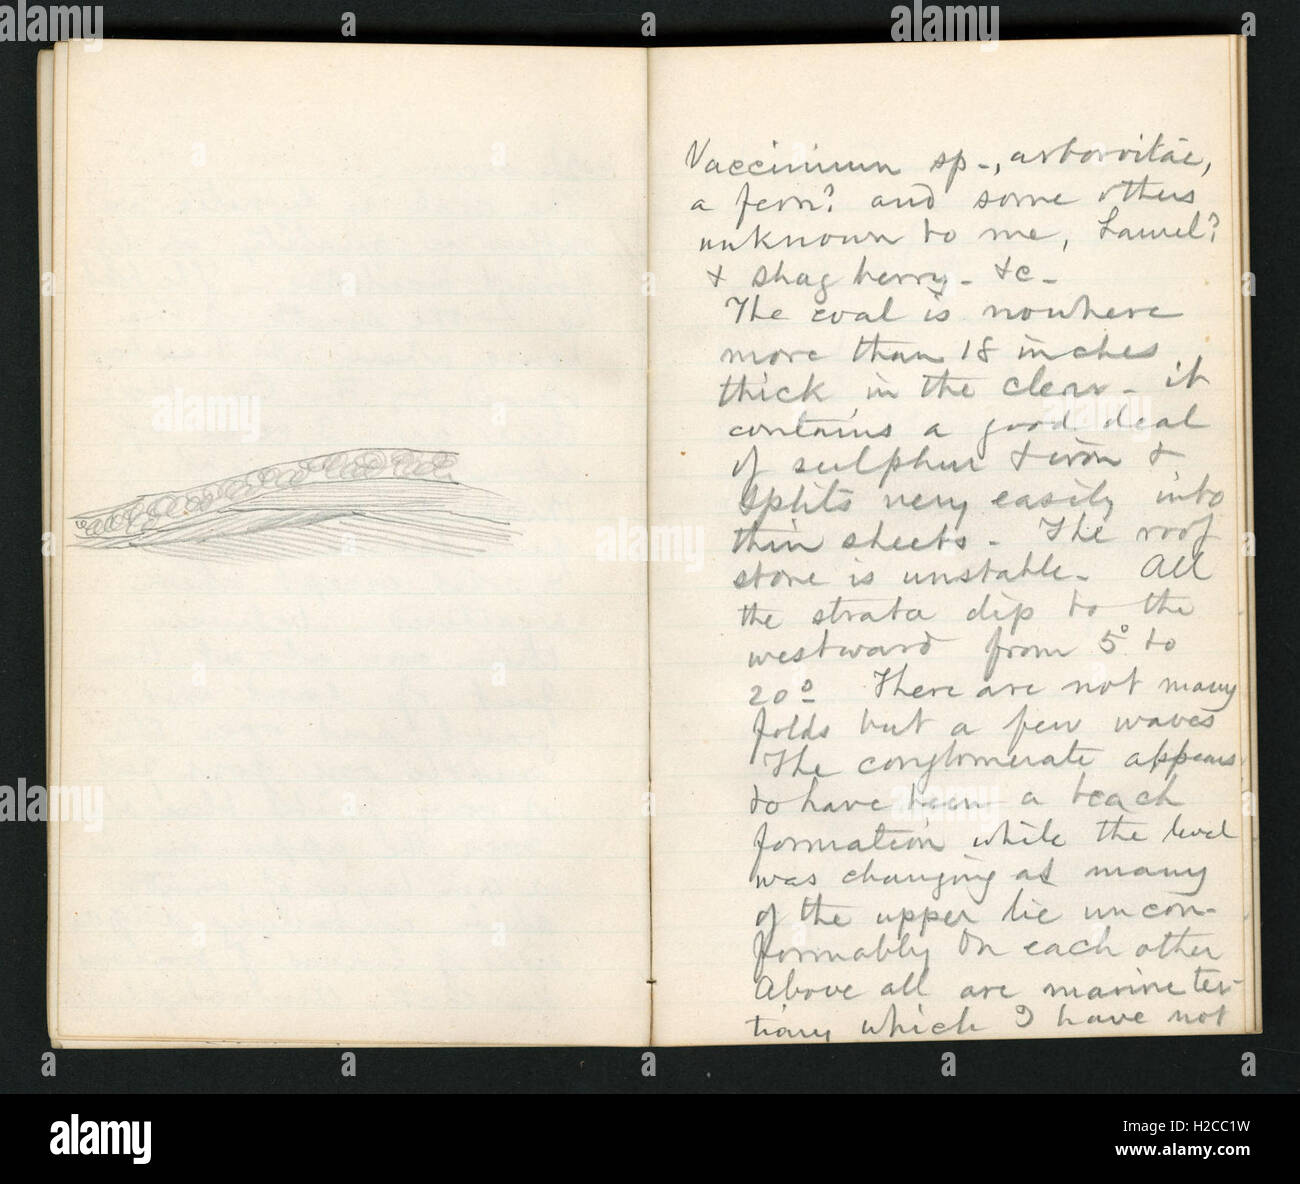 Vaccinium sp-, arborvitae,
a fern? and some others
unknown to me, Laurel?
+ shag berry - &c -
The coal is nowhere
more than 18 inches
thick in the clear - it
contains a good deal
of sulphur & iron &
splits very easily into
thin sheets - The roof
stone is unstable - All
the strata dip to the
westward from 5° to
20° There are not many
folds but a few waves
The conglomerate appears
to have been a beach
formation while the level
was changing as many
of the upper lie uncon-
formably on each other
Above all are marine ter-
tiary which I have not
alamy
H2CC1W
www.alamy.com